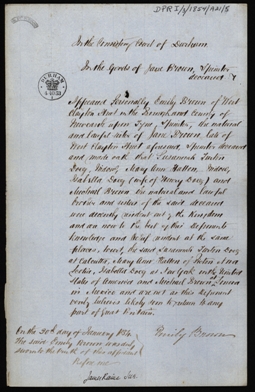 DPRI/1/1854/AN/5
In the Consistory Court of Durham
In the Goods of Jane Brown, Spinster
deceased
DURHAM
Appeared Personally Emily Brown of West
Clayton Street in the Town and County of
Newcastle upon Tyne, Spinster, the natural
and lawful sister of Jane Brown, late of
West Clayton Street aforesaid, Spinster deceased
and made oath that Susannah
Widow, Mary Ann Hutton, Widow,
Isabella Dovy (wife of Henry Dovy) and
Michael Brown the natural and lawful
brother and sisters of the said deceased
are severally resident out of the Kingdom
and are now to the best of this Deponents
knowledge and belief resident at the same
places, to wit, the said Susannah
at Calcutta, Mary Ann Hutton at
Isabella Dovy at New York in the United
States of America and Michael Brown
in Mexico and are not as this Deponent
verily believes likely soon to return to any
part of Great Britain.
On the 30th day of January 1854
The said Emily Brown was duly
sworn to the truth of this affidavit
Before me
Emily Brown